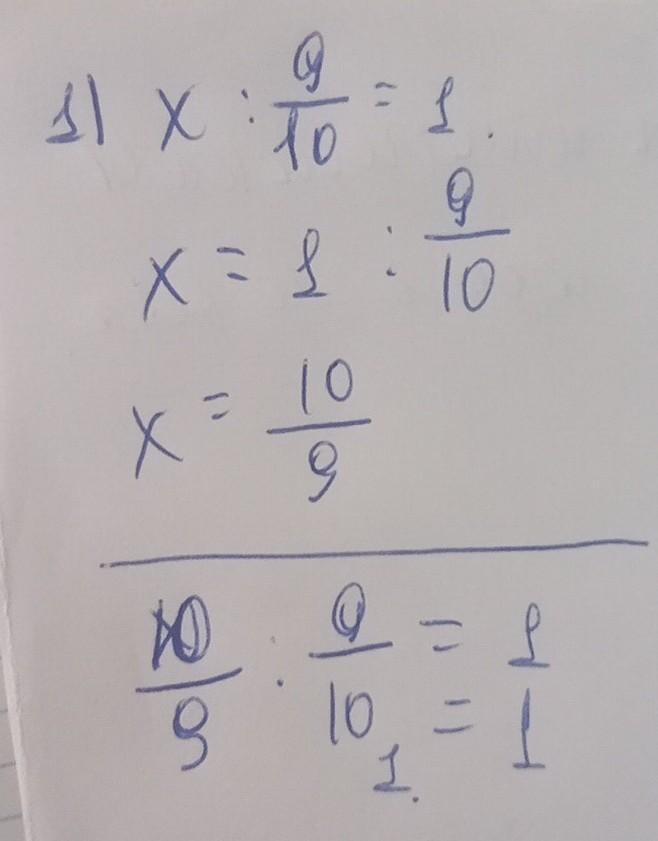 1) x : 9/10 = 1.
x = 1 : 9/10
x = 10/9
10/9 : 9/10 = 1
1. = 1